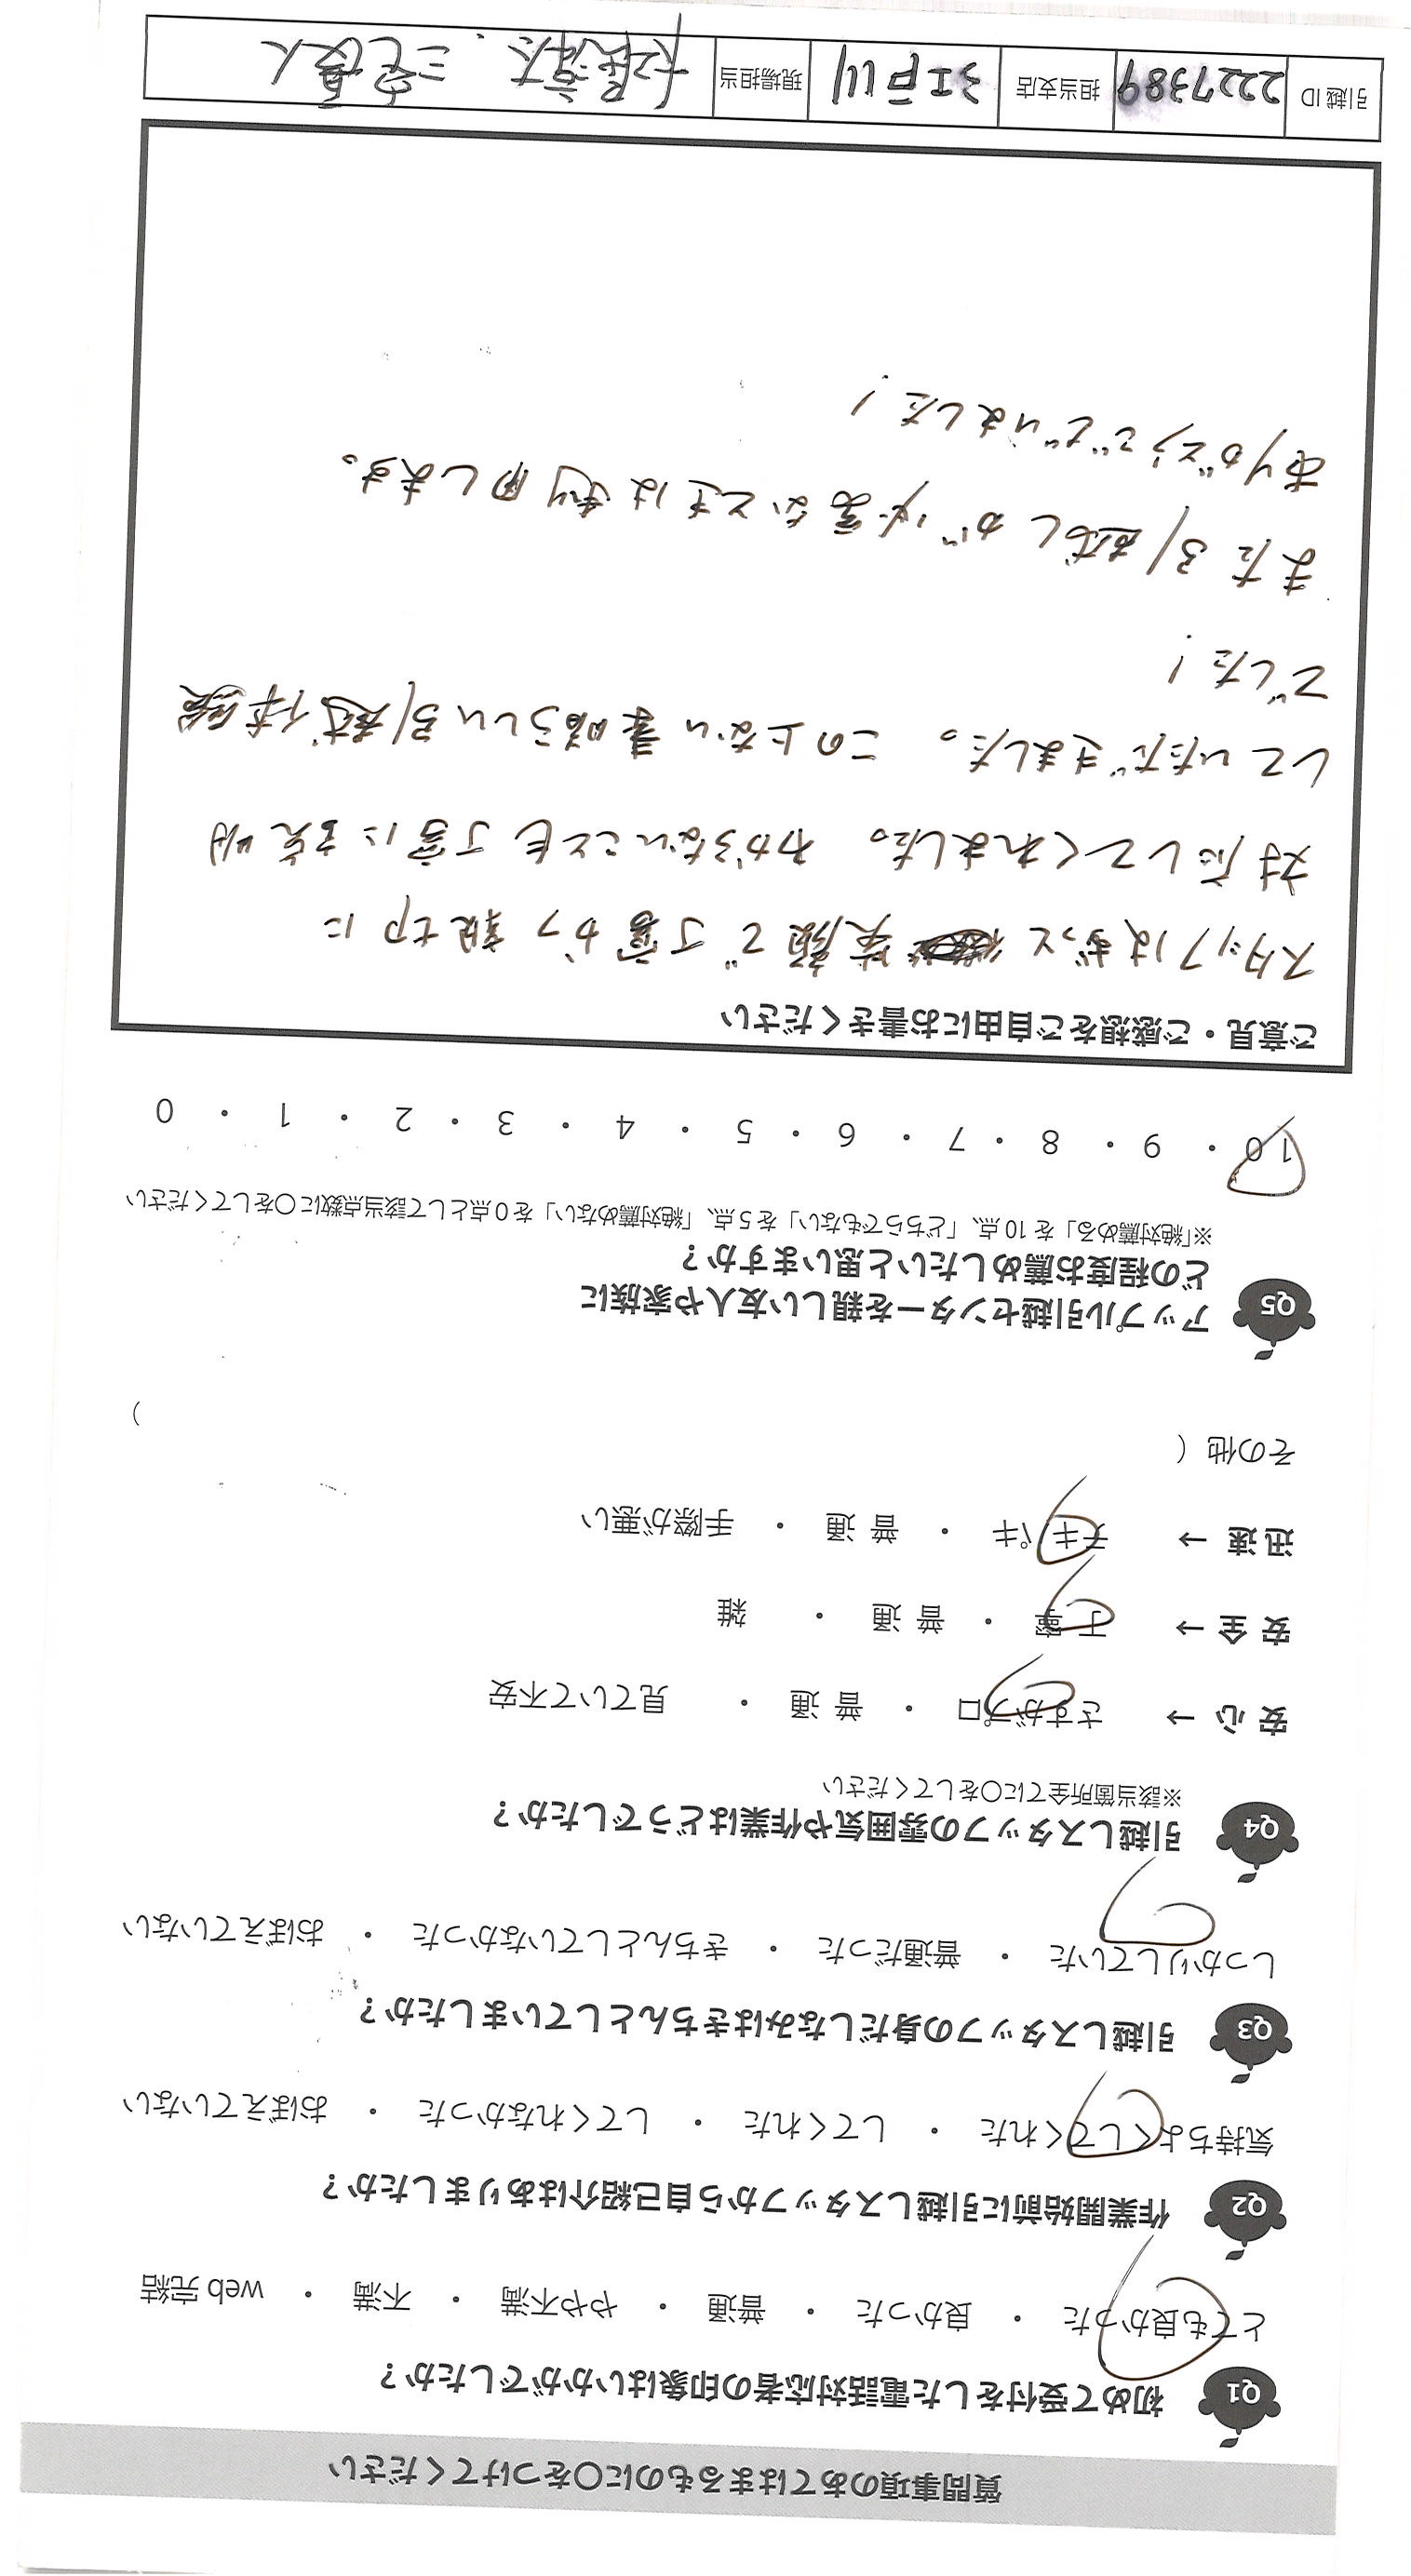 質問事項のあてはまるものに〇をつけてください
Q1 初めて受付をした電話対応者の印象はいかがでしたか？
とても良かった ・ 良かった ・ 普通 ・ やや不満 ・ 不満 ・ web 完結
Q2 作業開始前に引越しスタッフから自己紹介はありましたか？
気持ちよくしてくれた ・ してくれた ・ してくれなかった ・ おぼえていない
Q3 引越しスタッフの身だしなみはきちんとしていましたか？
しっかりしていた ・ 普通だった ・ きちんとしていなかった ・ おぼえていない
Q4 引越しスタッフの雰囲気や作業はどうでしたか？
※該当箇所全てに〇をしてください
安 心 → さすがプロ ・ 普 通 ・ 見ていて不安
安 全 → 丁 寧 ・ 普 通 ・ 雑
迅 速 → テキパキ ・ 普 通 ・ 手際が悪い
その他（ ）
Q5 アップル引越センターを親しい友人や家族に
どの程度お薦めしたいと思いますか？
※「絶対薦める」を 10 点、「どちらでもない」を 5 点、「絶対薦めない」を 0 点として該当点数に〇をしてください
10 ・ 9 ・ 8 ・ 7 ・ 6 ・ 5 ・ 4 ・ 3 ・ 2 ・ 1 ・ 0
ご意見・ご感想をご自由にお書きください
スタッフはずっと笑顔で丁寧かつ親切に
対応してくれました。 わからないことも丁寧に説明
していただきました。 この上ない素晴らしい引越体験
でした！
また引越しが必要なときは利用します。
ありがとうございました！
引越 ID 2227389 担当支店 江戸川 現場担当 三宅優人